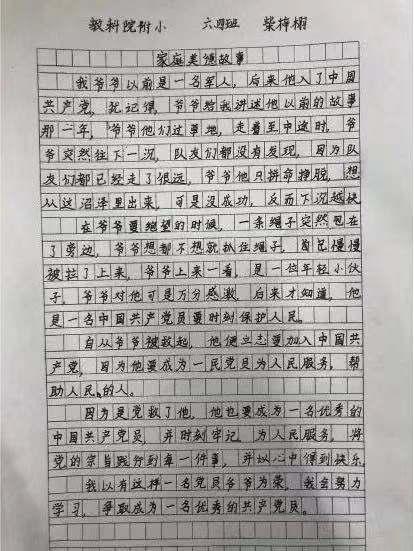 教科院附小 六四班 柴梓栩
家庭美德故事
我爷爷以前是一名军人，后来他入了中国
共产党，犹记得，爷爷给我讲述他以前的故事
那一年，爷爷他们过草地，走着至中途时，爷
爷突然往下一沉，队友们都没有发现，因为队
友们都已经走了很远，爷爷他只拼命挣脱，想
从这沼泽里出来，可是没成功，反而下沉越快
在爷爷要绝望的时候，一条绳子突然甩在
了旁边，爷爷想都不想就抓住绳子，自己慢慢
被拉了上来，爷爷上来一看，是一位年轻小伙
子，爷爷对他可是万分感激，后来才知道，他
是一名中国共产党员要时刻保护人民。
自从爷爷被救起，他便立志要加入中国共
产党，因为他要成为一民党员为人民服务，帮
助人民的人。
因为是党救了他，他也要成为一名优秀的
中国共产党员，并时刻牢记，为人民服务，将
党的宗旨践行到每一件事，并以心中得到快乐
我以有这样一名党员爷爷为荣，我会努力
学习，争取成为一名优秀的共产党员。